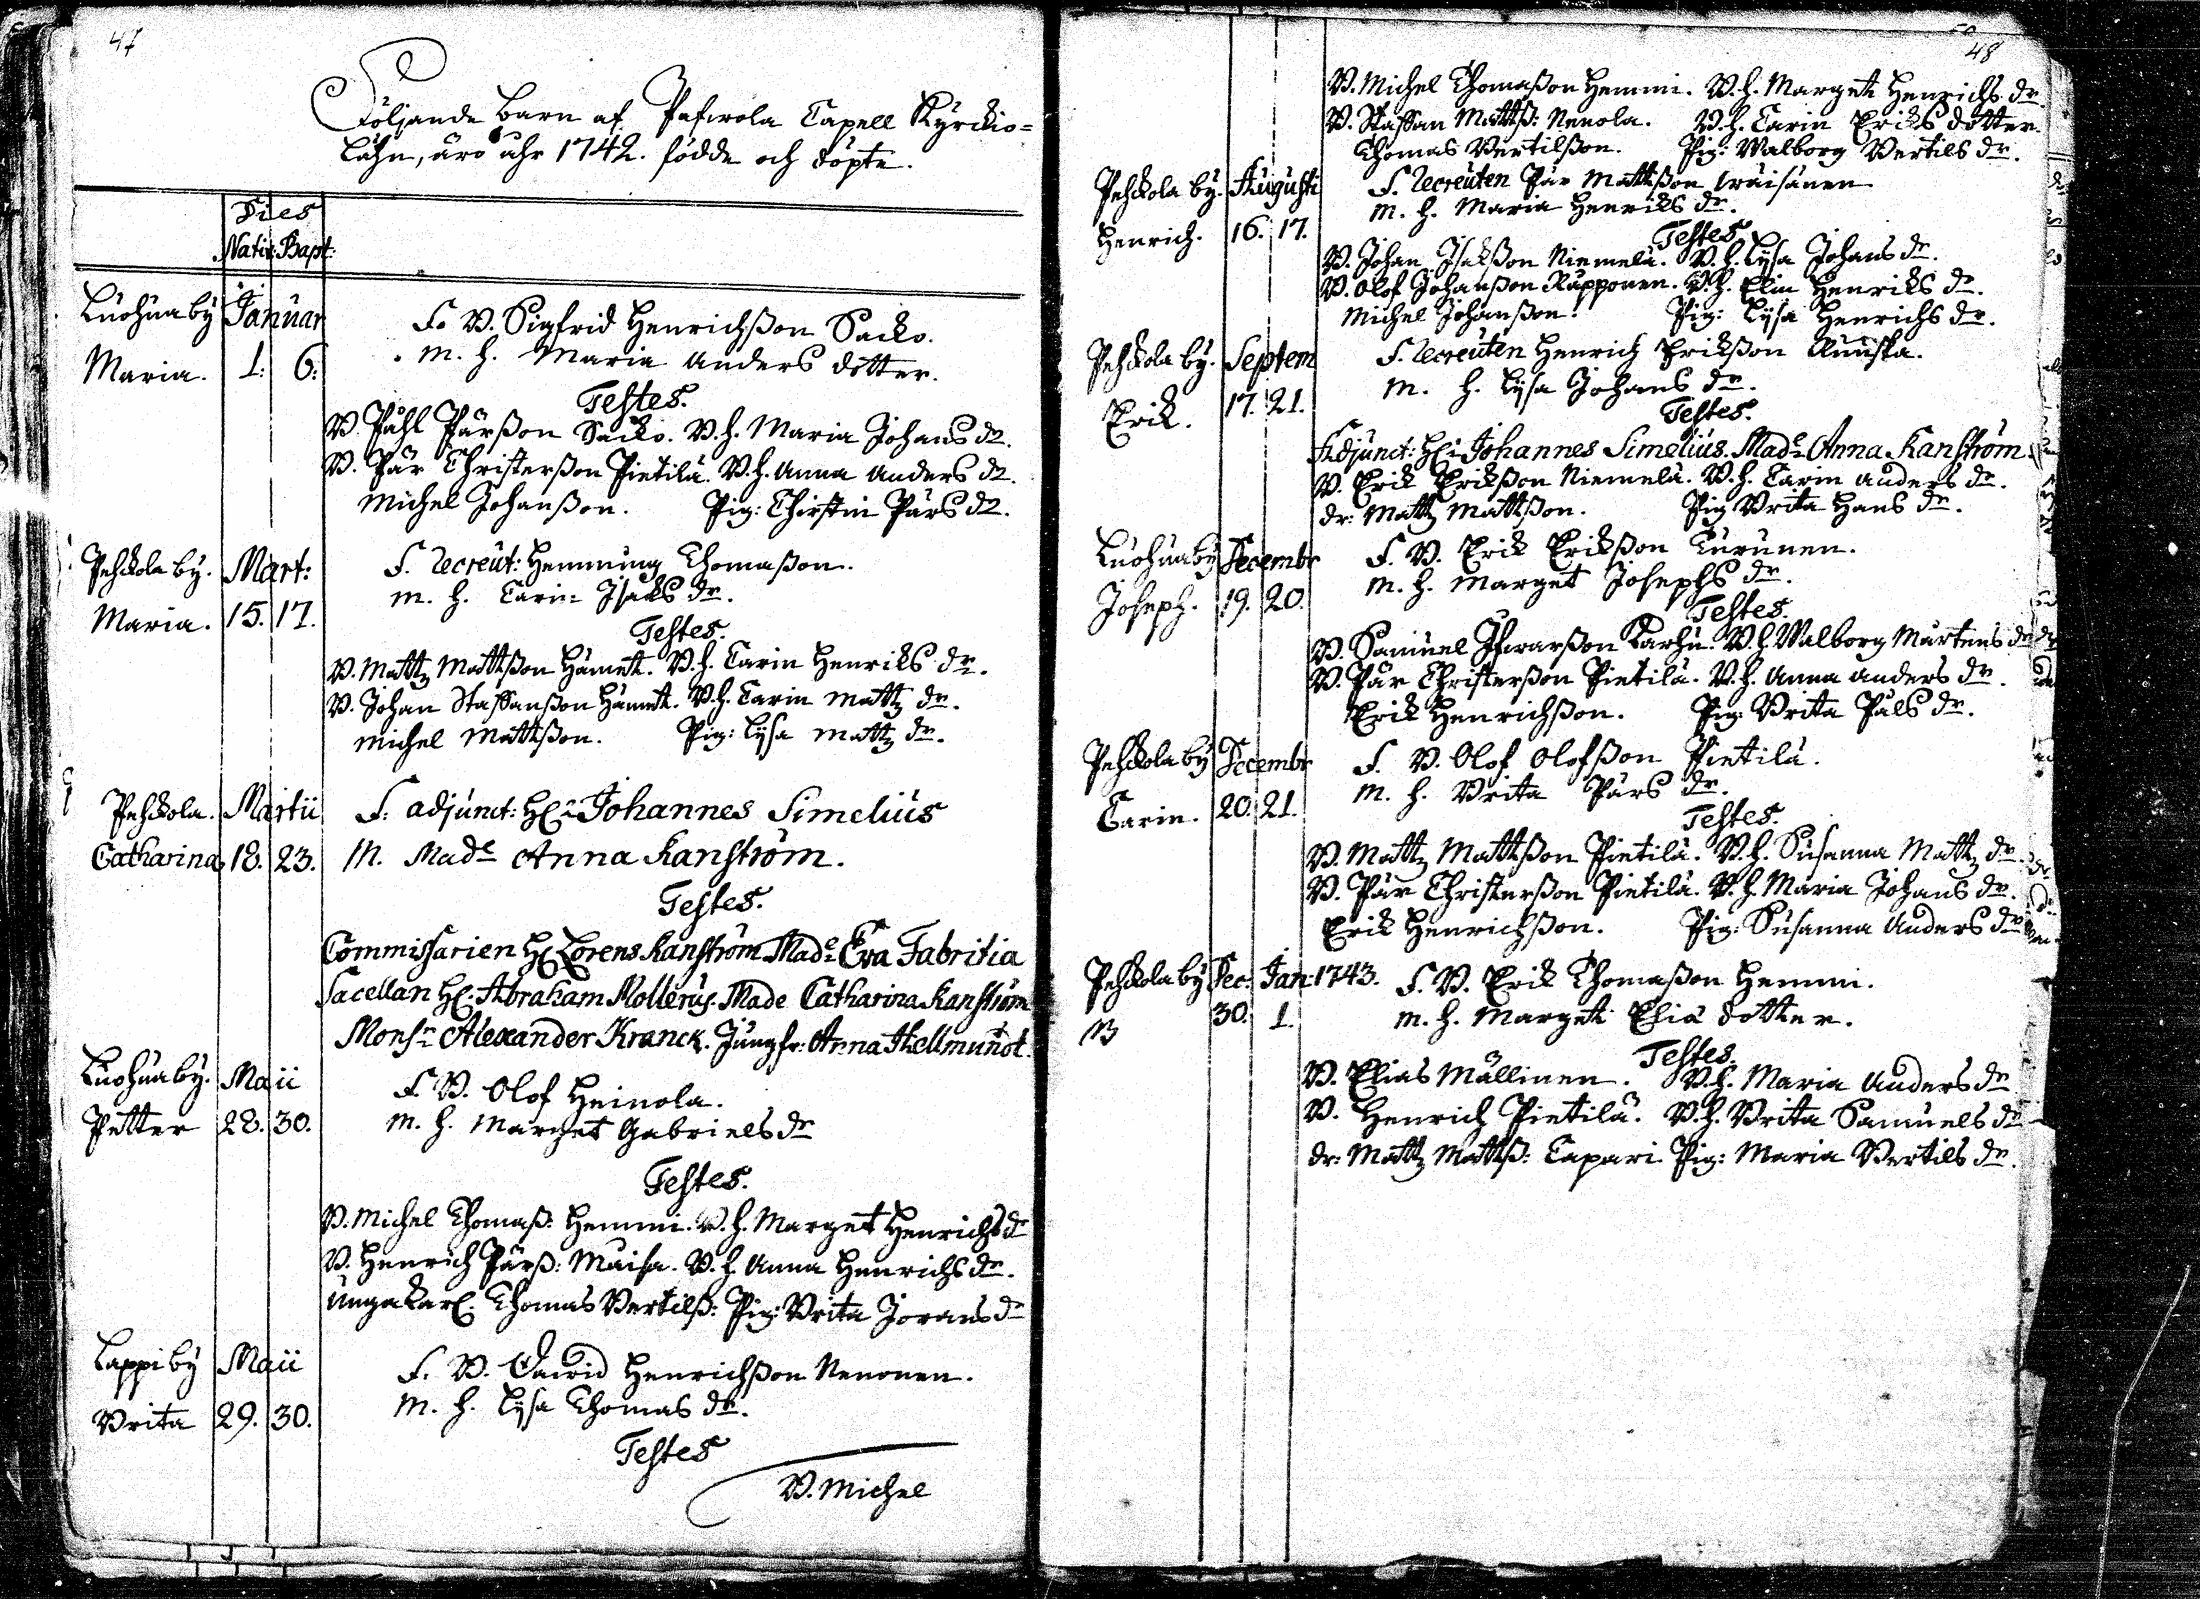 47
Följande Barn af Pafwola Capell Kyrckio=
Lähn, äro åhr 1742. födde och döpte.
Dies
Nativ: Bapt:
Luohua by Januar F. B. Sigfrid Henrichßon Sacko.
Maria. 1. 6. M. H. Maria Anders dotter.
Testes.
B. Påhl Pärßon Sacko. B. H. Maria Johans dr.
B. Pär Christerßon Pietilä. B. H. Anna Anders dr.
Michel Johanßon. Pig: Chirstin Pärs dr.
Pehkola by. Mart: F. Recreut: Hemming Thomaßon.
Maria. 15. 17. M. H. Carin Isaks dr.
Testes.
B. Mattz Mattßon Hämet. B. H. Carin Henriks dr.
B. Johan Staffanßon Hämet. B. H. Carin Mattz dr.
Michel Mattßon. Pig: Lysa Mattz dr.
Pehkola. Martii F. Adjunct: Hr Johannes Simelius
Catharina 18. 23. M. Made Anna Kanström.
Testes.
Commissarien Hr Lorens Kanström Made Eva Fabritia
Sacellan Hr. Abraham Mollerus. Made Catharina Kanström
Monsr Alexander Kranck. Jungfr: Anna Hellmunot.
Luohua by. Maii F. B. Olof Heinola.
Petter 28. 30. M. H. Marget Gabriels dr
Testes.
B. Michel Thomaß: Hemmi. B. H. Marget Henrichs dr
B. Henrich Pärß: Maisa. B. H. Anna Henrichs dr.
Unga Karl. Thomas Bertilß: Pig: Brita Jorans dr
Lappi by Maii F. B. David Henrichßon Nenonen.
Brita 29. 30. M. H. Lysa Thomas dr.
Testes
B. Michel
48
B. Michel Thomaßon Hemmi. B. H. Marget Henrichs dr.
B. Staffan Mattß: Nenola. B. H. Carin Eriks dotter.
Thomas Bertilßon. Pig: Walborg Bertils dr.
Pehkola by. Augusti F. Recreuten Pär Mattßon
Henrich. 16. 17. M. H. Maria Henriks dr.
Testes
B. Johan Isakßon Niemelä. B. H. Lysa Johans dr.
B. Olof Johanßon Rupponen. B. H. Elin Henriks dr.
Michel Johanßon. Pig: Lysa Henrichs dr.
Pehkola by. Septem F. Recreuten Henrich Erikßon
Erik. 17. 21. M. H. Lysa Johans dr.
Testes.
Adjunct: Hr Johannes Simelius. Made Anna Kanström
B. Erik Erikßon Niemelä. B. H. Carin Anders dr.
dr: Mattz Mattßon. Pig Brita Hans dr.
Luohua by Decembr F. B. Erik Erikßon Turunen.
Joseph. 19. 20. M. H. Marget Josephs dr.
Testes.
B. Samuel Ifwarßon Karhu. B. H. Walborg Mårtens dr
B. Pär Christerßon Pietilä. B. H. Anna Anders dr.
Erik Henrichßon. Pig: Brita Påls dr.
Pehkola by Decembr F. B. Olof Olofßon Pietilä.
Carin. 20. 21. M. H. Brita Pärs dr.
Testes.
B. Mattz Mattßon Pietilä. B. H. Susanna Mattz dr.
B. Pär Christerßon Pietilä. B. H. Maria Johans dr.
Erik Henrichßon. Pig: Susanna Anders dr
Pehkola by Dec: Jan: 1743. F. B. Erik Thomaßon Hemmi.
30. 1. M. H. Marget Eliä dotter.
Testes.
B. Elias Mällinen. B. H. Maria Anders dr
B. Henrich Pietilä. B. H. Brita Samuels dr
dr: Mattz Mattß: Tapari. Pig: Maria Bertils dr.